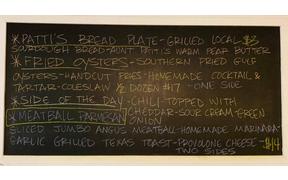 *PATTI'S BREAD PLATE-GRILLED LOCAL $3
SOURDOUGH BREAD-AUNT PATTI'S WARM PEAR BUTTER
*FRIED OYSTERS-SOUTHERN FRIED GULF
OYSTERS-HANDCUT FRIES-HOMEMADE COCKTAIL &
TARTAR-COLESLAW 1/2 DOZEN $17 -ONE SIDE
*SIDE OF THE DAY-CHILI-TOPPED WITH
CHEDDAR-SOUR CREAM-GREEN ONION
*MEATBALL PARMESAN
SLICED JUMBO ANGUS MEATBALL-HOMEMADE MARINARA-
GARLIC GRILLED TEXAS TOAST-PROVOLONE CHEESE-$14
TWO SIDES